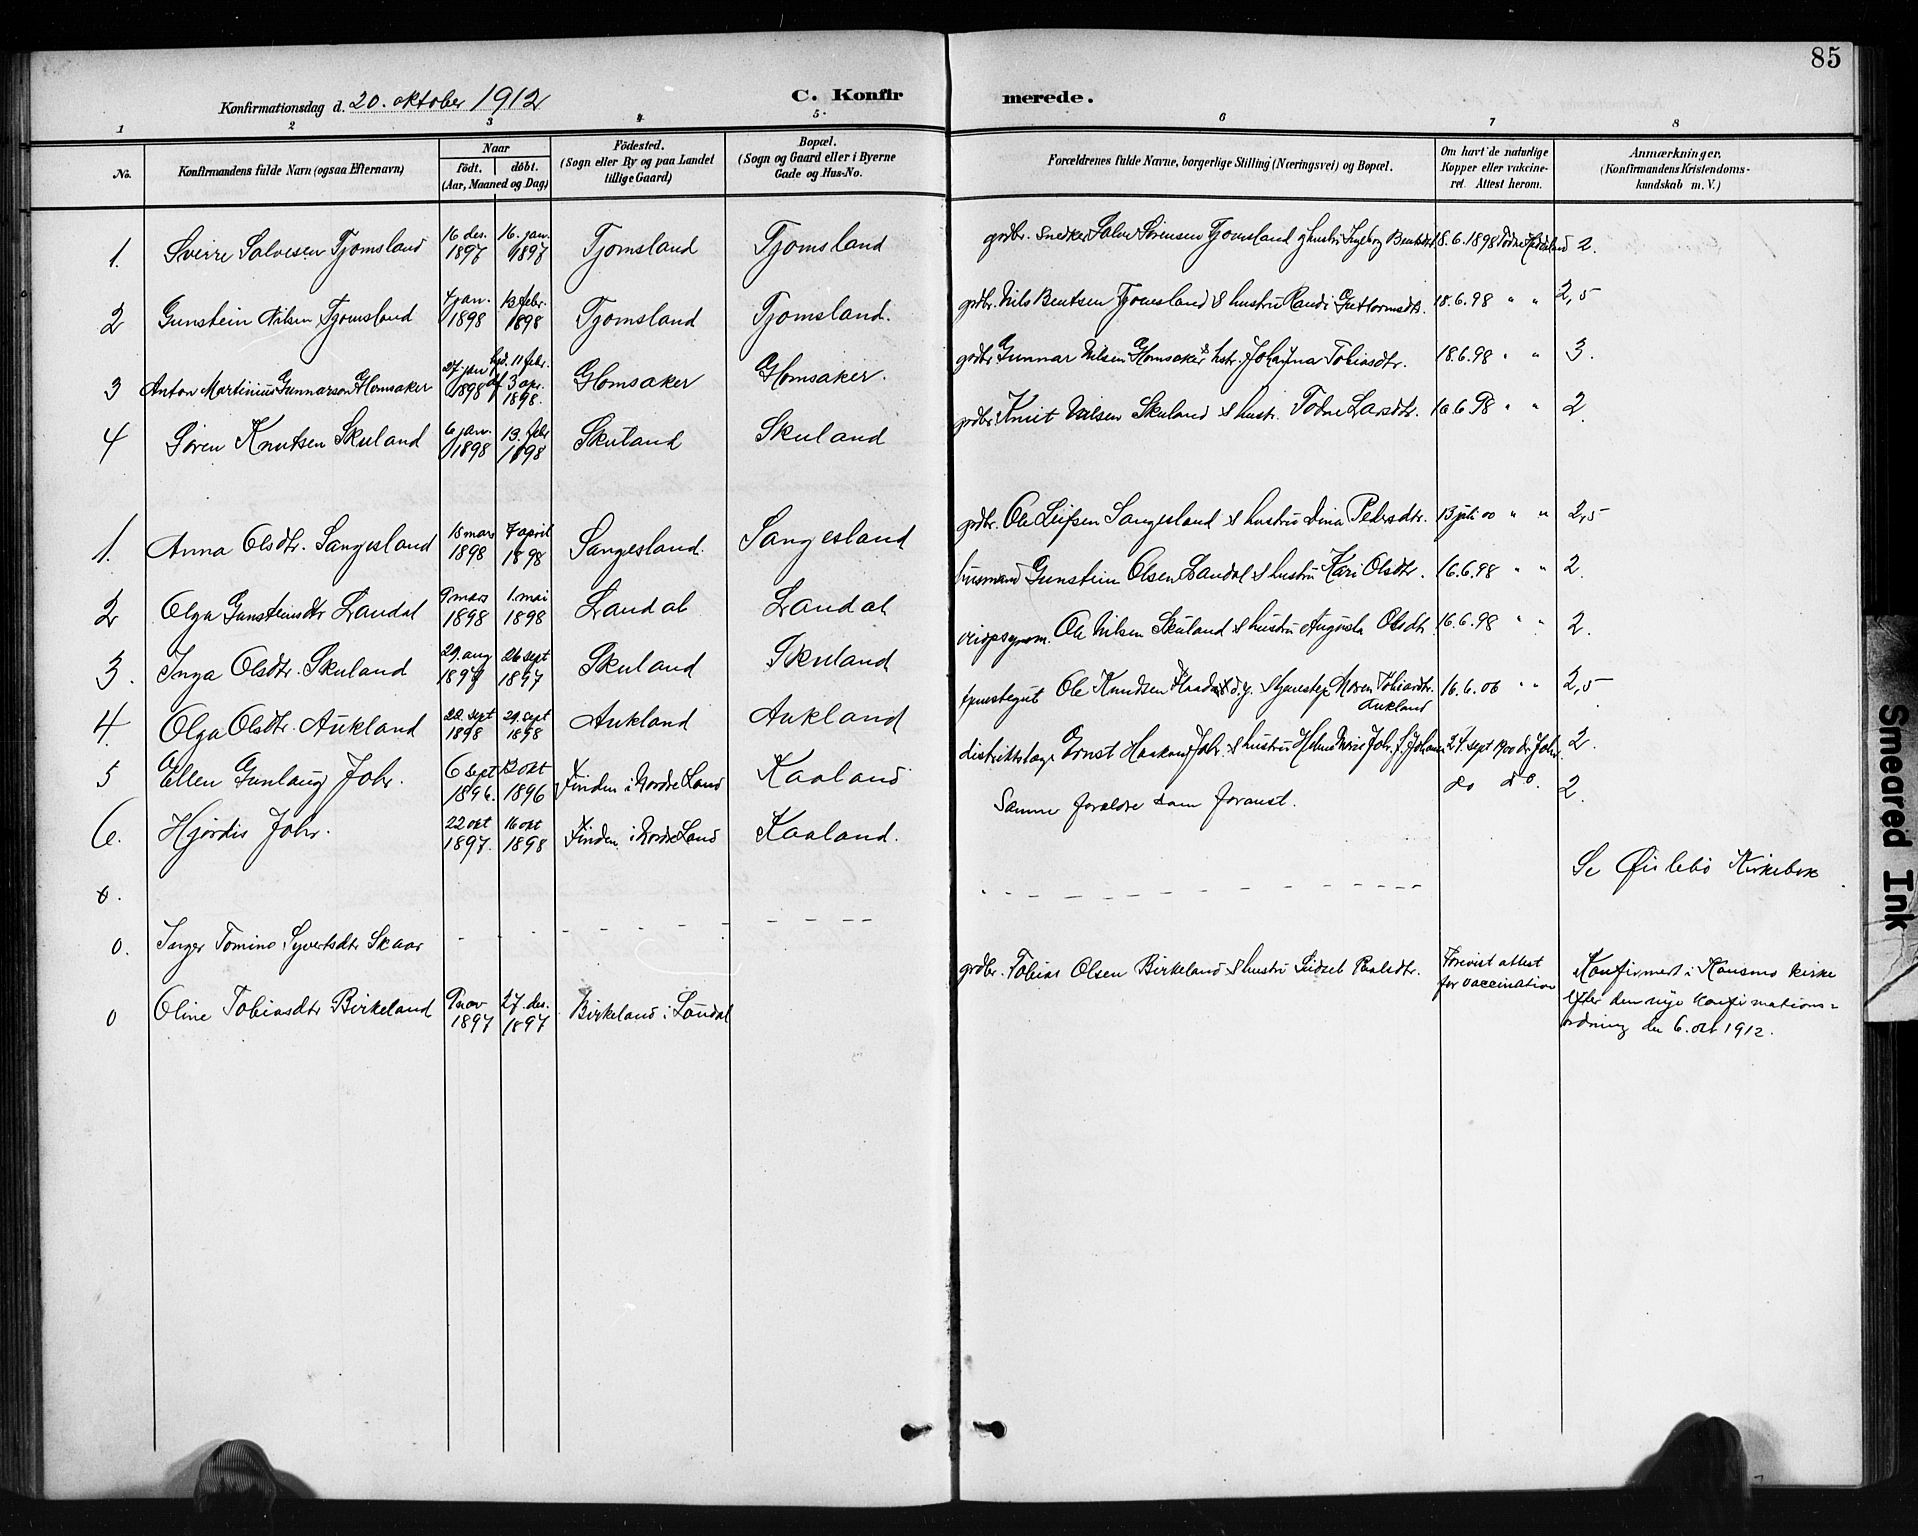 85
Konfirmationsdag d. 20. oktober 1912
C. Konfirmerede.
1 2 3 4 5. 6 7 8
No.
Konfirmandens fulde Navn (ogsaa Efternavn)
Naar
födt. döbt.
(Aar, Maaned og Dag)
Födested.
(Sogn eller By og paa Landet
tillige Gaard)
Bopæl.
(Sogn og Gaard eller i Byerne
Gade og Hus-No.
Forældrenes fulde Navne, borgerlige Stilling (Næringsvei) og Bopæl.
Om havt de naturlige
Kopper eller vakcine-
ret. Attest herom.
Anmærkninger.
(Konfirmandens Kristendoms-
kundskab m. V.)
1. Sverre Salvesen Tjomsland 16 des. 1897 16. jan. 1898 Tjomsland Tjomsland grdbr. snedker Salve Sørensen Tjomsland & hustru Ingeborg 18.6.1898 2.
2 Gunstein Nilsen Tjomsland 4 jan. 1898 13 febr. 1898 Tjomsland Tjomsland. grdbr. Nils Bentsen Tjomsland & hustru Randi Guttormsdtr. 18.6.98 " " 2,5
3 Anton Martinius Gunnarson Homsaker 27. jan 1898 11 febr. 3 apr. 1898. Homsaker Homsaker. grdbr Gunnar Nilsen Homsaker & hstr. Johanna Tobiasdtr. 18.6.98 " " 3.
4 Søren Knutsen Skuland 6 jan. 1898 13. febr 1898 Skuland Skuland grdbr. Knut Nilsen Skuland & hustr. Todne Larsdtr. 16.6.98 " " 2.
1. Anna Olsdtr. Sangesland 18 mars 1898 7 april 1898 Sangesland. Sangesland grdbr. Ole Leifsen Sangesland & hustru Dina Pedersdtr. 13 juli 00 " " 2,5
2 Olga Gunsteinsdtr Laudal 9 mars 1898 1. mai 1898 Laudal Laudal husmand Gunstein Olsen Laudal & hustru Kari Olsdtr. 16.6.98 " " 2.
3. Inga Olsdtr. Skuland 29. aug 1897 26 sept 1897 Skuland Skuland Ole Nilsen Skuland & hustru Augusta Olsdtr. 16.6.98 " " 2.
4. Olga Olsdtr. Aukland 22. sept 1898 29. sept 1898 Aukland Aukland tjenestegut Ole Knudsen d.y. & tjenestep. Maren Tobiasdtr. Aukland 16.6.06 " " 2,5
5 Ellen Gunlaug Johr. 6 sept 1896. 12 okt 1896 Finden i Nordre Land Kaaland distriktslæge Ernst Haakon Johr. & hustru Johr. f. 24. sept 1900 dr. Johr. 2.
6. Hjørdis Johr. 22 okt 1897. 16 okt 1898 Finden. i Nordre Land Kaaland. Samme forældre som forrest. do do. 2.
0. Se Øislebø Kirkebok
0. Inger Tomine Syvertsdtr Skaar
0 Oline Tobiasdtr Birkeland 9 nov 1897 27. des. 1897 Birkeland i Laudal grdbr. Tobias Olsen Birkeland & hustru Sidsel Paalsdtr. Forevist attest for vaccination Konfirmert i Konsmo kirke efter den nye konfirmations= ordning den 6. okt 1912.
Smeared Ink